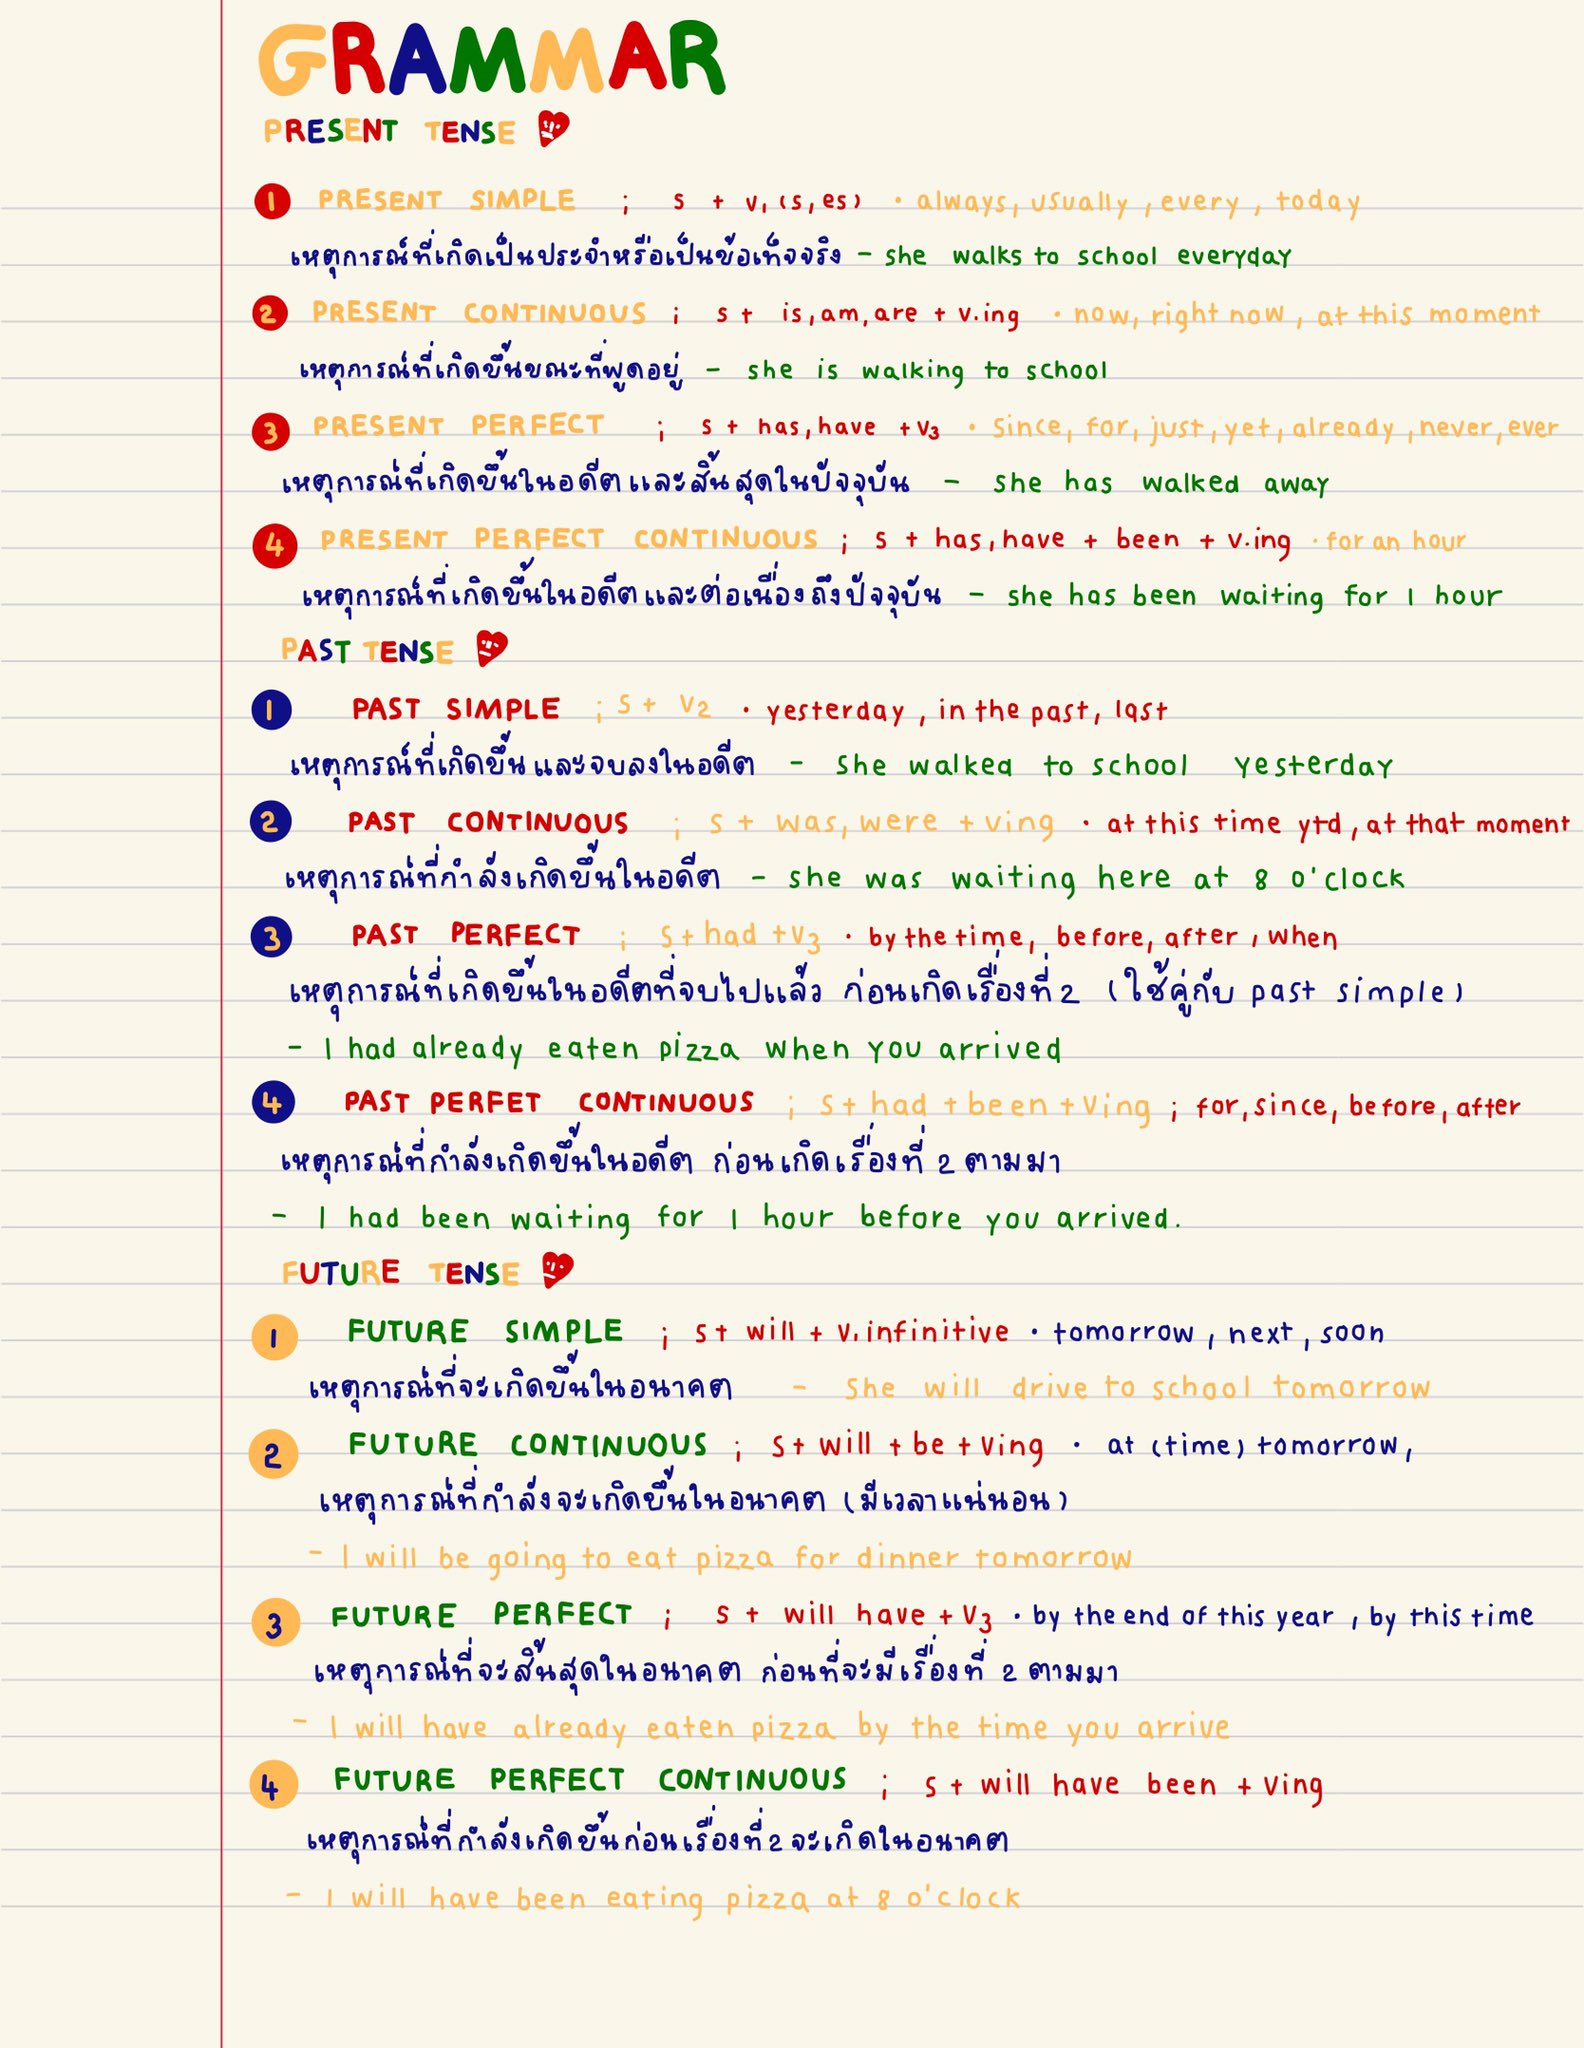 GRAMMAR
PRESENT TENSE
1 PRESENT SIMPLE ; s + v1 (s, es) · always, usually, every, today
เหตุการณ์ที่เกิดเป็นประจำหรือเป็นข้อเท็จจริง - she walks to school everyday
2 PRESENT CONTINUOUS ; s + is, am, are + v.ing · now, right now, at this moment
เหตุการณ์ที่เกิดขึ้นขณะที่พูดอยู่ - she is walking to school
3 PRESENT PERFECT ; s + has, have + v3 · since, for, just, yet, already, never, ever
เหตุการณ์ที่เกิดขึ้นในอดีตและสิ้นสุดในปัจจุบัน - she has walked away
4 PRESENT PERFECT CONTINUOUS ; s + has, have + been + v.ing · for an hour
เหตุการณ์ที่เกิดขึ้นในอดีตและต่อเนื่องถึงปัจจุบัน - she has been waiting for 1 hour
PAST TENSE
1 PAST SIMPLE ; s + v2 · yesterday, in the past, last
เหตุการณ์ที่เกิดขึ้นและจบลงในอดีต - she walked to school yesterday
2 PAST CONTINUOUS ; s + was, were + ving · at this time ytd, at that moment
เหตุการณ์ที่กำลังเกิดขึ้นในอดีต - she was waiting here at 8 o'clock
3 PAST PERFECT ; s + had + v3 · by the time, before, after, when
เหตุการณ์ที่เกิดขึ้นในอดีตที่จบไปแล้ว ก่อนเกิดเรื่องที่ 2 (ใช้คู่กับ past simple)
- I had already eaten pizza when you arrived
4 PAST PERFET CONTINUOUS ; s + had + been + ving ; for, since, before, after
เหตุการณ์ที่กำลังเกิดขึ้นในอดีต ก่อนเกิดเรื่องที่ 2 ตามมา
- I had been waiting for 1 hour before you arrived.
FUTURE TENSE
1 FUTURE SIMPLE ; s + will + v.infinitive · tomorrow, next, soon
เหตุการณ์ที่จะเกิดขึ้นในอนาคต - She will drive to school tomorrow
2 FUTURE CONTINUOUS ; s + will + be + ving · at (time) tomorrow,
เหตุการณ์ที่กำลังจะเกิดขึ้นในอนาคต (มีเวลาแน่นอน)
- I will be going to eat pizza for dinner tomorrow
3 FUTURE PERFECT ; s + will have + v3 · by the end of this year, by this time
เหตุการณ์ที่จะสิ้นสุดในอนาคต ก่อนที่จะมีเรื่องที่ 2 ตามมา
- I will have already eaten pizza by the time you arrive
4 FUTURE PERFECT CONTINUOUS ; s + will have been + ving
เหตุการณ์ที่กำลังเกิดขึ้นก่อนเรื่องที่ 2 จะเกิดในอนาคต
- I will have been eating pizza at 8 o'clock